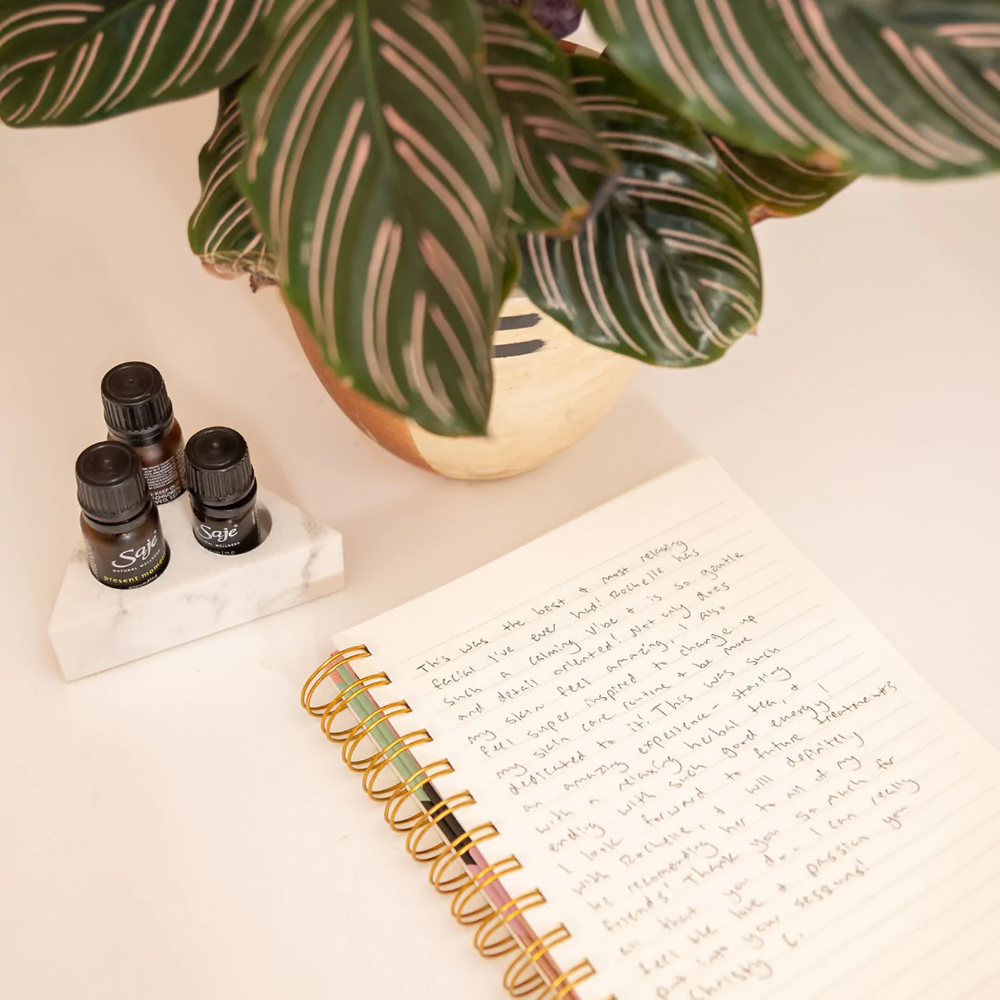 Saje
NATURAL WELLNESS
present mome
Saje
NATURAL WELLNESS
This was the best & most relaxing
facial I've ever had! Rochelle has
such a calming vibe & is so gentle
and detail oriented! Not only does
my skin feel amazing, I also
feel super inspired to change up
my skin care routine & be more
dedicated to it! This was such
an amazing experience - starting
with a relaxing herbal tea, &
ending with such good energy!
I look forward to future treatments
with Rochelle, & will definitely
be recomending her to all of my
friends! Thank you so much for
all that you do - I can really
feel the love & passion you
put into your sessions!
Christy L.